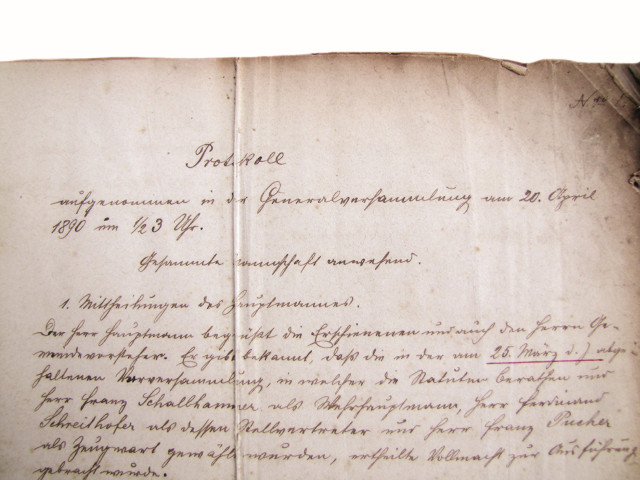 No
Protokoll
aufgenommen in der Generalversammlung am 20. April
1890 um 1/2 3 Uhr.
Gesammte Mannschaft anwesend.
1. Mittheilungen des Hauptmannes.
Der Herr Hauptmann begrüßt die Erschienenen und auch den Herrn Ge-
meindevorsteher. Er gibt bekannt, daß die in der am 25. März d. J. abge-
haltenen Vorversammlung, in welcher die Statuten berathen und
Herr Franz Schallhammer als Wehrhauptmann, Herr Ferdinand
Schreithofer als dessen Stellvertreter und Herr Franz Pucher
als Zeugwart gewählt wurden, ertheilte Vollmacht zur Ausführung
gebracht wurde.